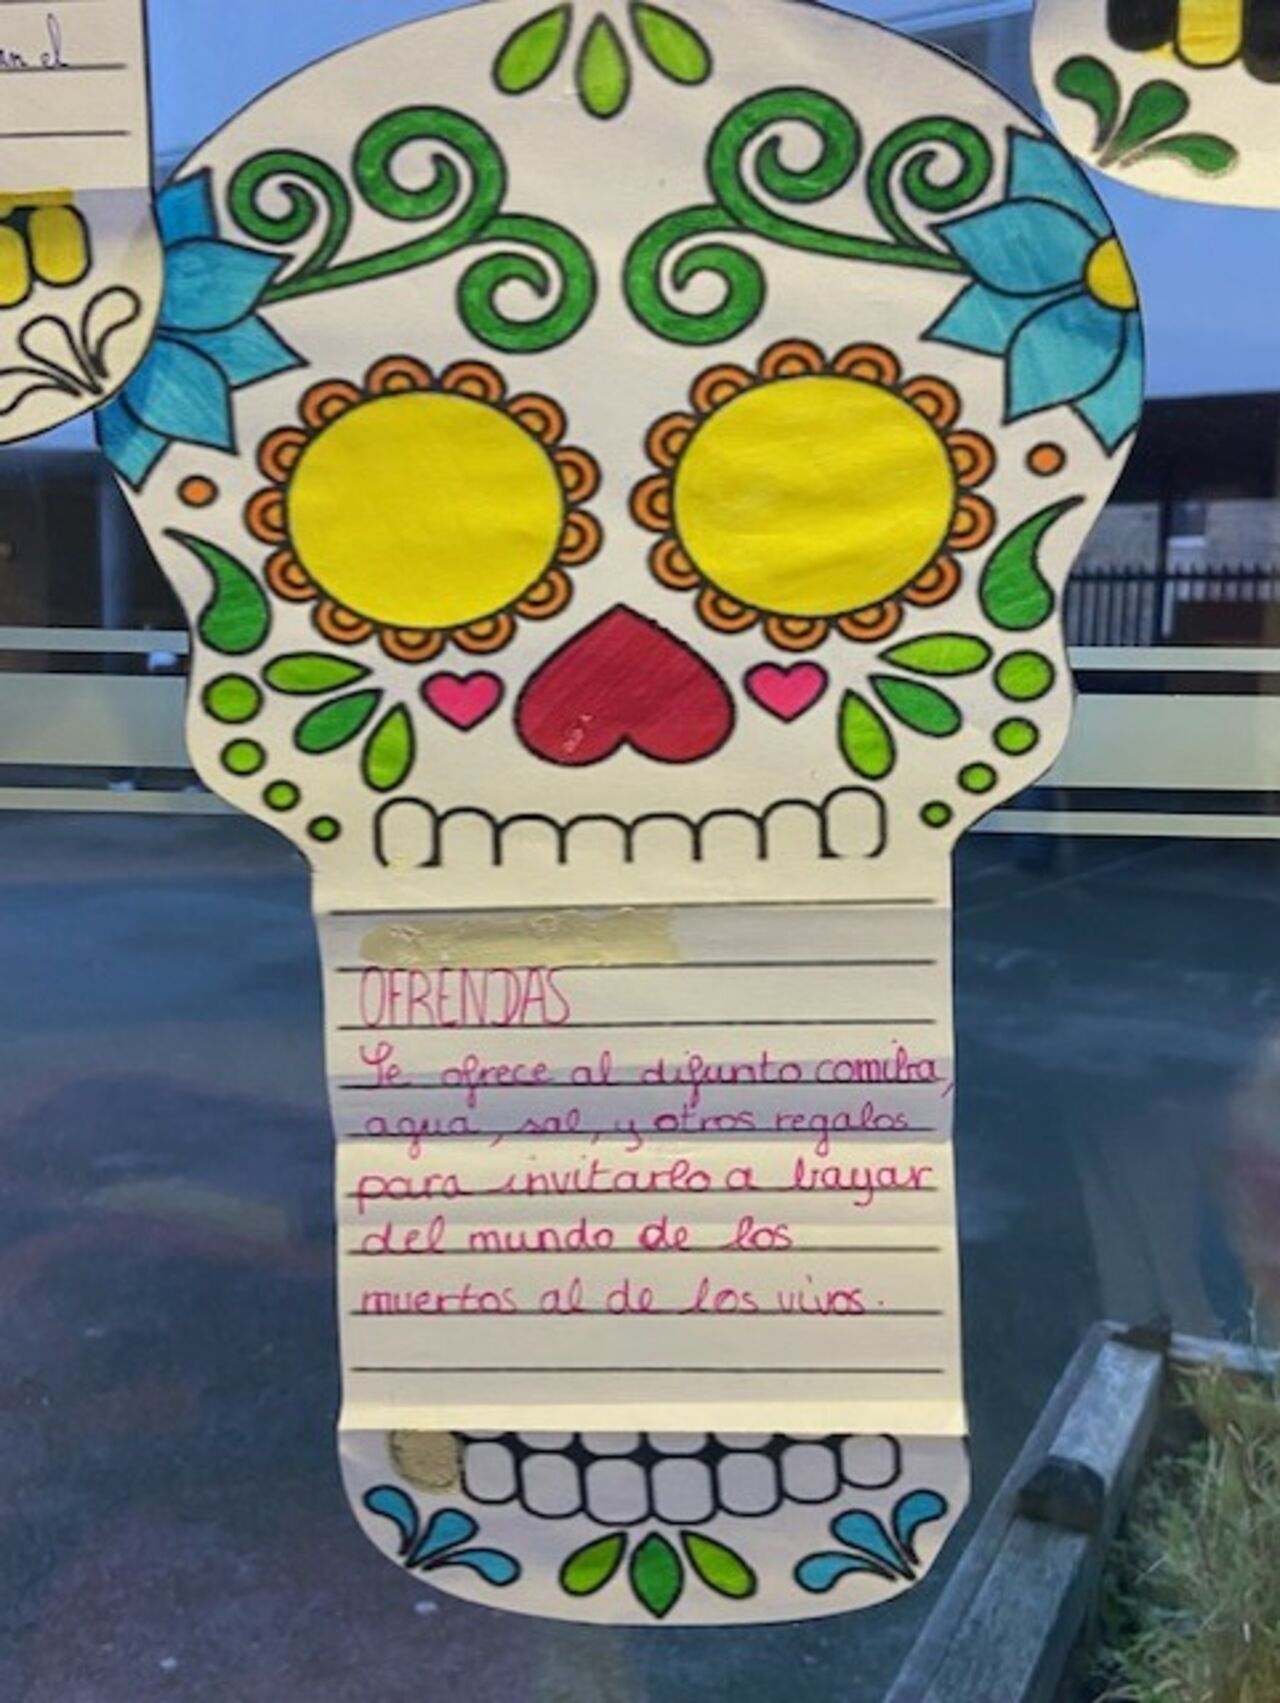 an el
OFRENDAS
Se ofrece al difunto comida,
agua, sal, y otros regalos
para invitarlo a bayar
del mundo de los
muertos al de los vivos.